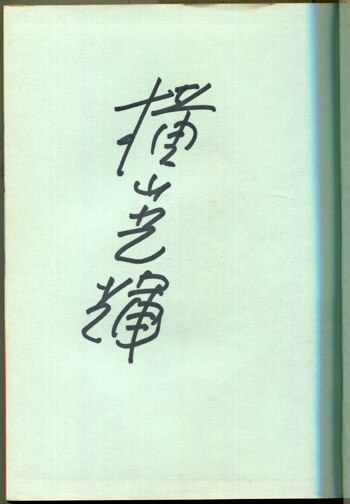 横山光輝